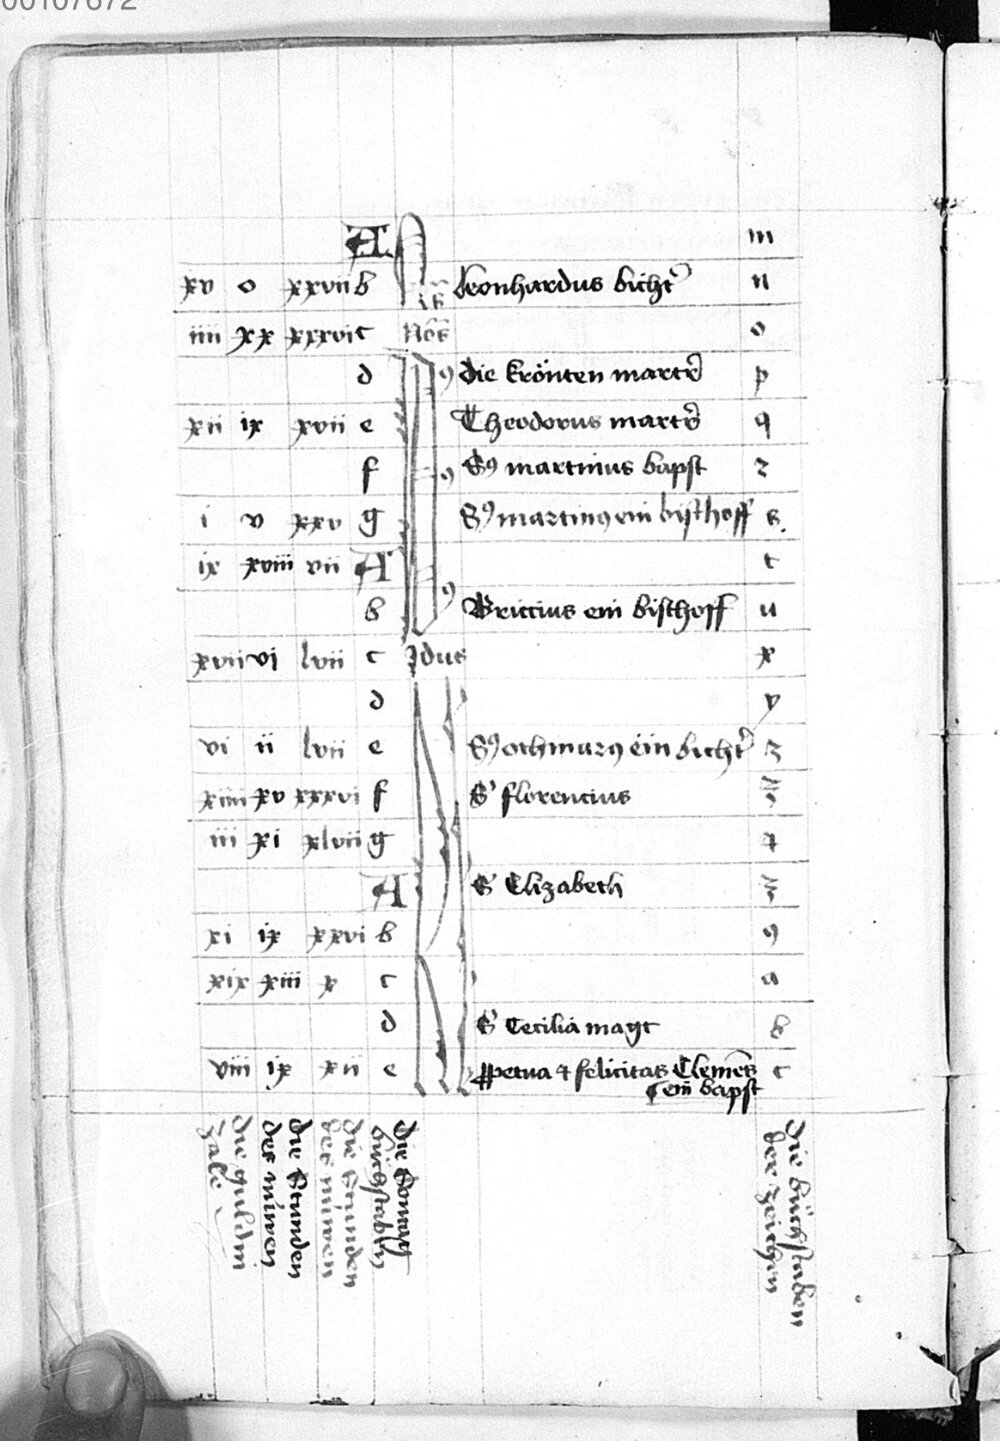 00107672
A m
xv o xxvii b Leonhardus bichtr̄ n
iiii xx xxxvi c Nōs o
d die krönten martr̄ p
xii ix xvii e Theodorus martr̄ q
f S9 martinus bapst z
i v xxv g S9 martin9 ein bisthoff s
ix xviii vii A t
b Briccius ein bisthoff u
xvii vi lvii c Idus x
d y
vi ii lvii e S9 othmar9 ein bichtr̄ z
xiiii xv xxxvi f S' florencius
iii xi xlvii g
A S' Elizabeth
xi ix xxvi b 9
xix xiii x c a
d S' Cecilia magt b
viii ix xii e ꝑpetua & felicitas Clemēs c
ein bapst
die guldin
zale
die Stunden
des nüwen
die Stunden
des nüwen
die Sontag
bůchstaben
die bůchstaben
der zeichen